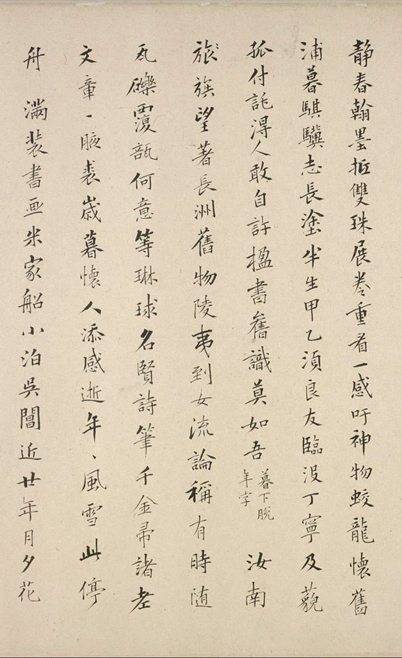 静春翰墨抵雙珠展卷重看一感吁神物蛟龍懷舊
浦暮騏驥志長塗半生甲乙須良友臨没丁寧及藐
孤付託得人敢自許楹書舊識莫如吾 暮下脱年字 汝南
旅旗望著長洲舊物陵夷到女流論稱有時随
瓦礫覆瓿何意等琳球名賢詩筆千金帚諸老
文章一腋裘歲暮懷人添感逝年〻風雪此停
舟 滿裝書画米家船小泊吳閶近廿年月夕花